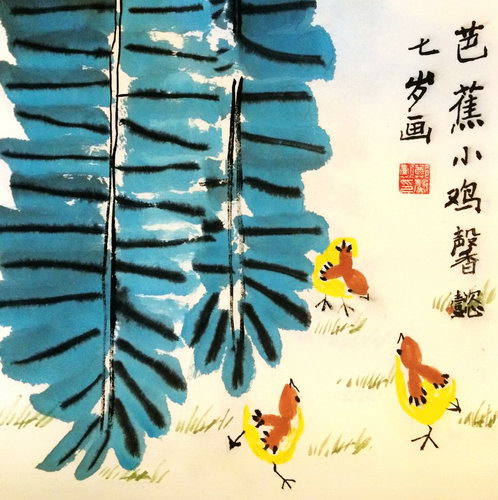 芭蕉小鸡馨懿
七岁画